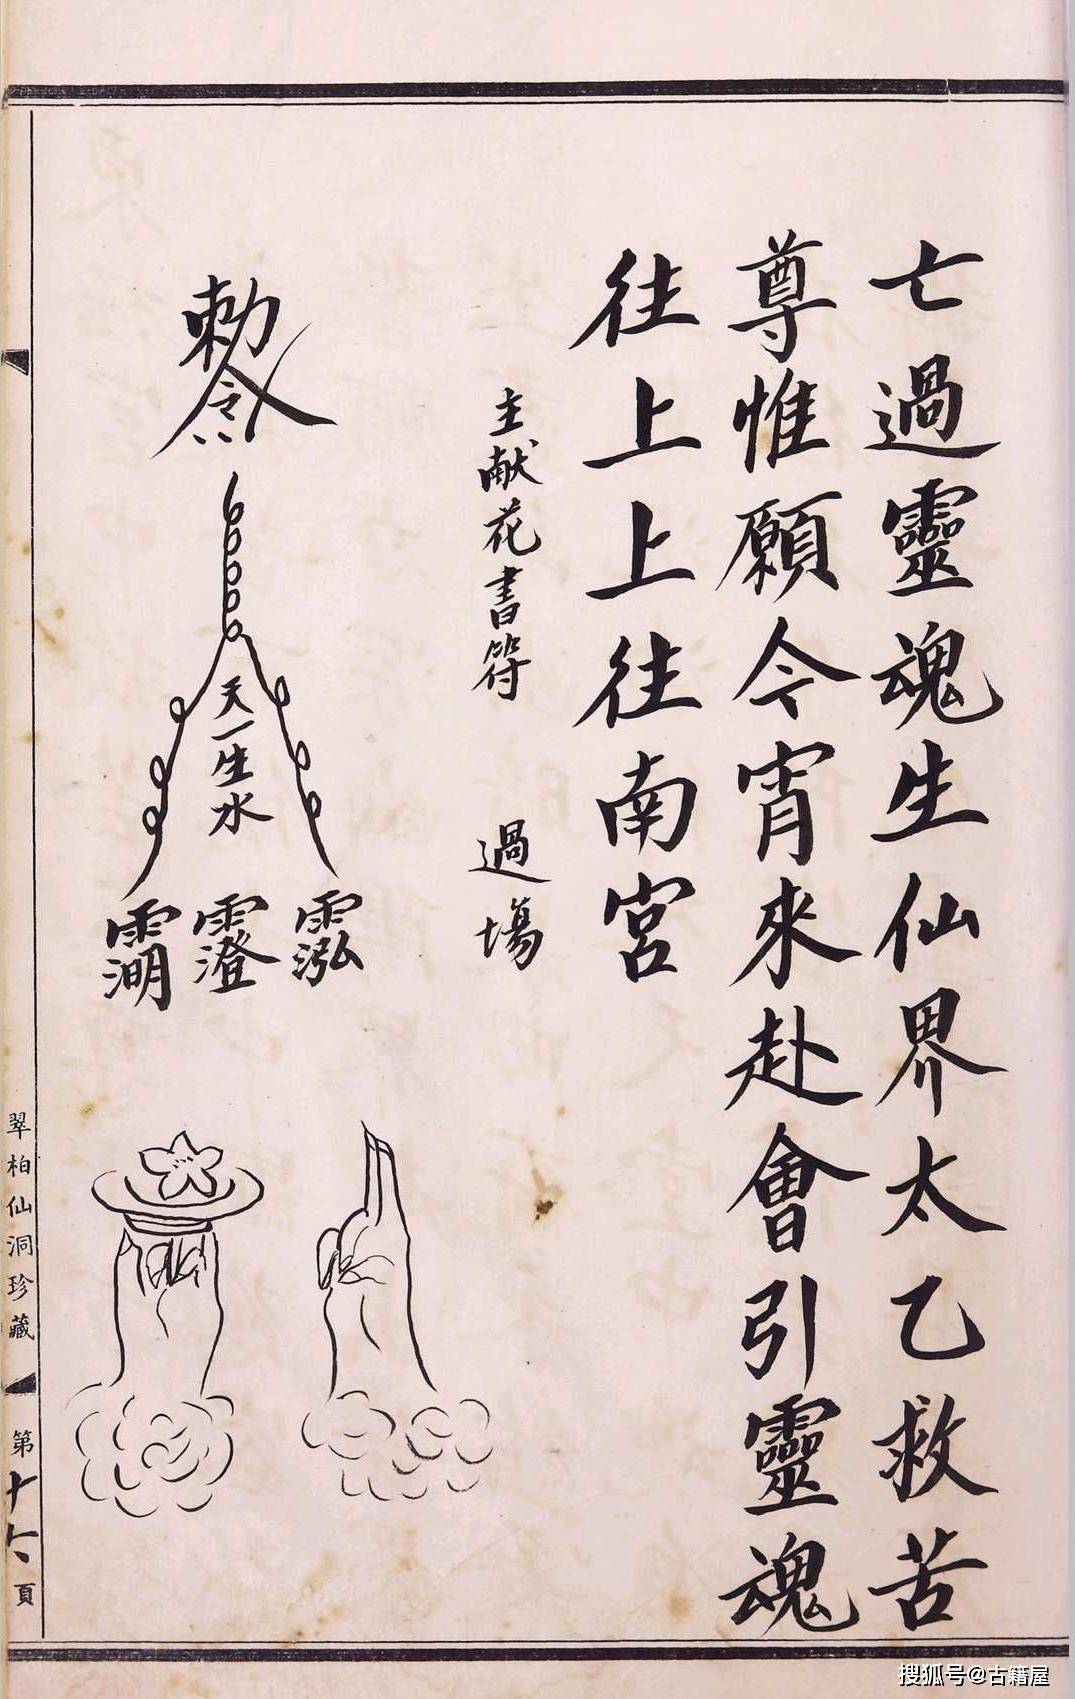 亡過靈魂生仙界太乙救苦
尊惟願今宵來赴會引靈魂
往上上往南宮
主献花書符　過場
勅令
天一生水
翠柏仙洞珍藏
第十六頁
搜狐号@古籍屋